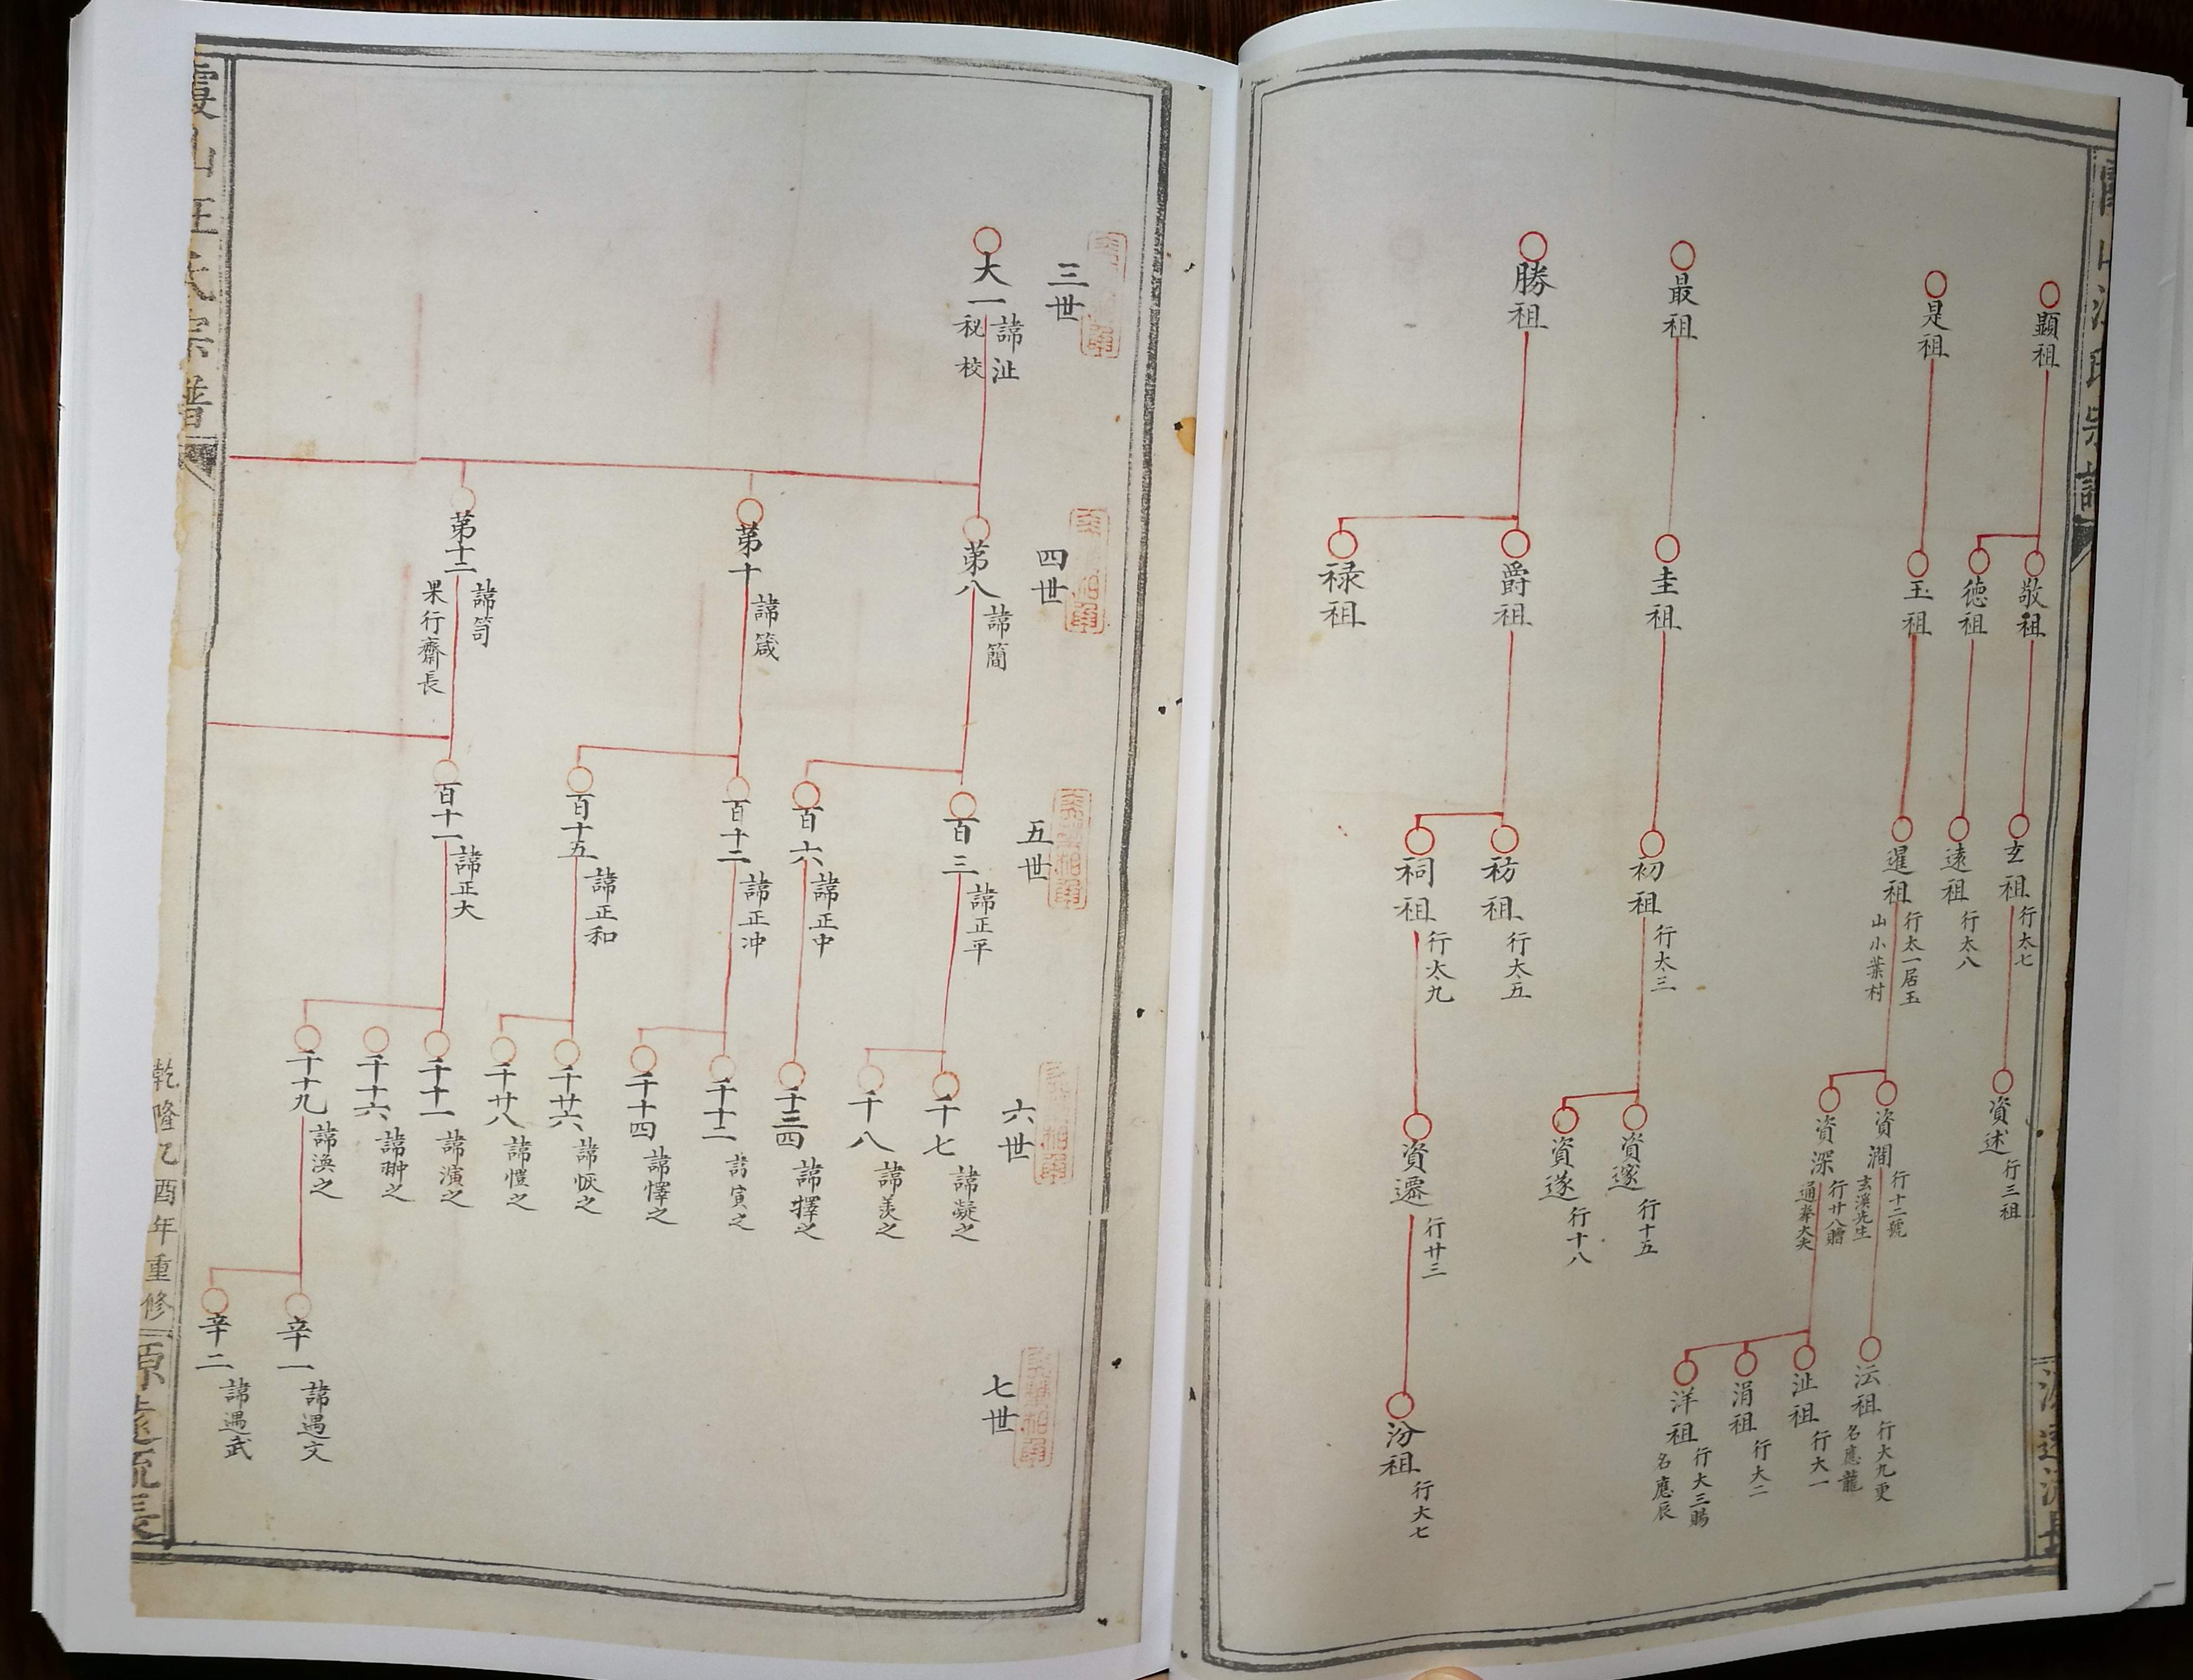 顯祖
敬祖
德祖
玄祖
行太七
遠祖
行太八
資述
行三祖
是祖
玉祖
暹祖
行太一居玉
山小葉村
資澗
行十二號
玄溪先生
資深
行廿八贈
通奉大夫
沄祖
行大九更
名應龍
沚祖
行大一
涓祖
行大二
洋祖
行大三賜
名應辰
最祖
圭祖
初祖
行太三
資邃
行十五
資遂
行十八
勝祖
爵祖
禄祖
祊祖
行太五
祠祖
行太九
資遷
行廿三
汾祖
行大七
三世
四世
五世
六世
七世
大一
諱沚
秘校
第八
諱簡
百三
諱正平
千七
諱凝之
千八
諱羙之
百六
諱正中
諱擇之
第十
諱箴
百十二
諱正冲
千十二
諱寅之
千十四
諱懌之
百十五
諱正和
千廿六
諱恢之
千廿八
諱愷之
第十二
諱笥
果行齋長
百十一
諱正大
千十一
諱演之
千十六
諱翀之
千十九
諱渙之
辛一
諱遇文
辛二
諱遇武
霞山汪氏宗譜
乾隆乙酉年重修
源遠流長